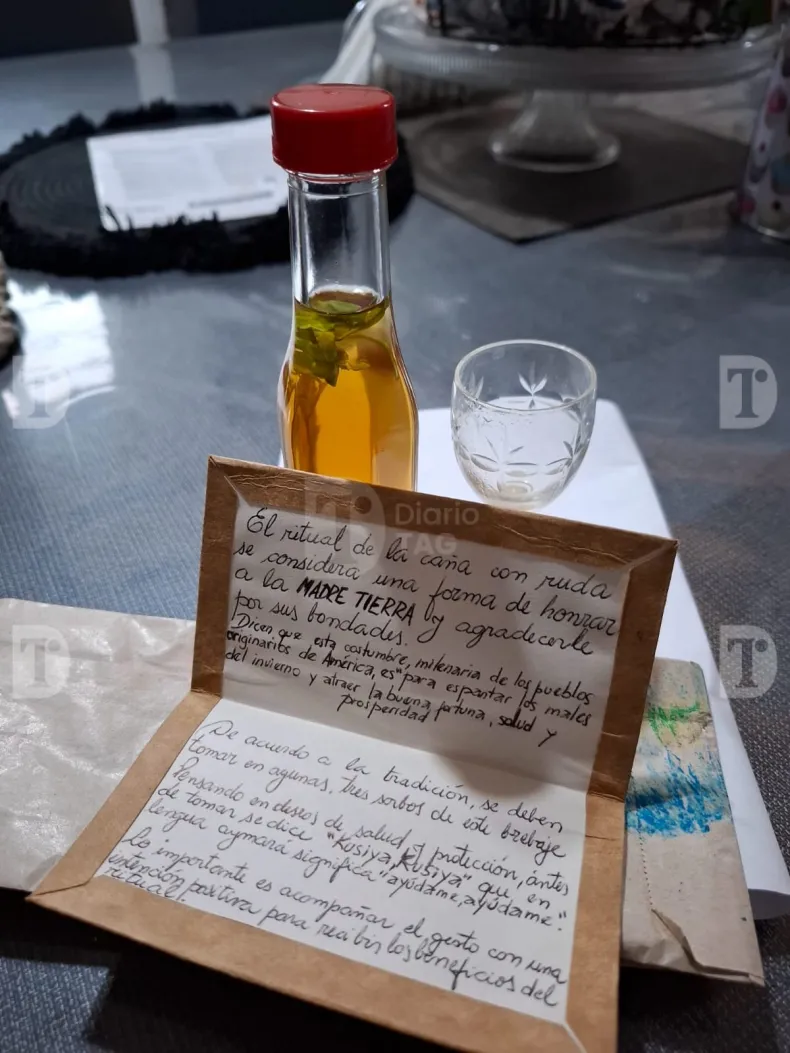 El ritual de la caña con ruda
se considera una forma de honrar
a la MADRE TIERRA y agradecerle
por sus bondades.
Dicen que esta costumbre, milenaria de los pueblos
originarios de América, es "para espantar los males
del invierno y atraer la buena fortuna, salud y
prosperidad
De acuerdo a la tradición, se deben
tomar en ayunas, tres sorbos de este brebaje
Pensando en deseos de salud y protección, antes
de tomar se dice "Kusiya, Kusiya" que en
lengua aymará significa "ayúdame, ayúdame".
Lo importante es acompañar el gesto con una
intención positiva para recibir los beneficios del
ritual!
Diario
TAG
T
T
T
T
T